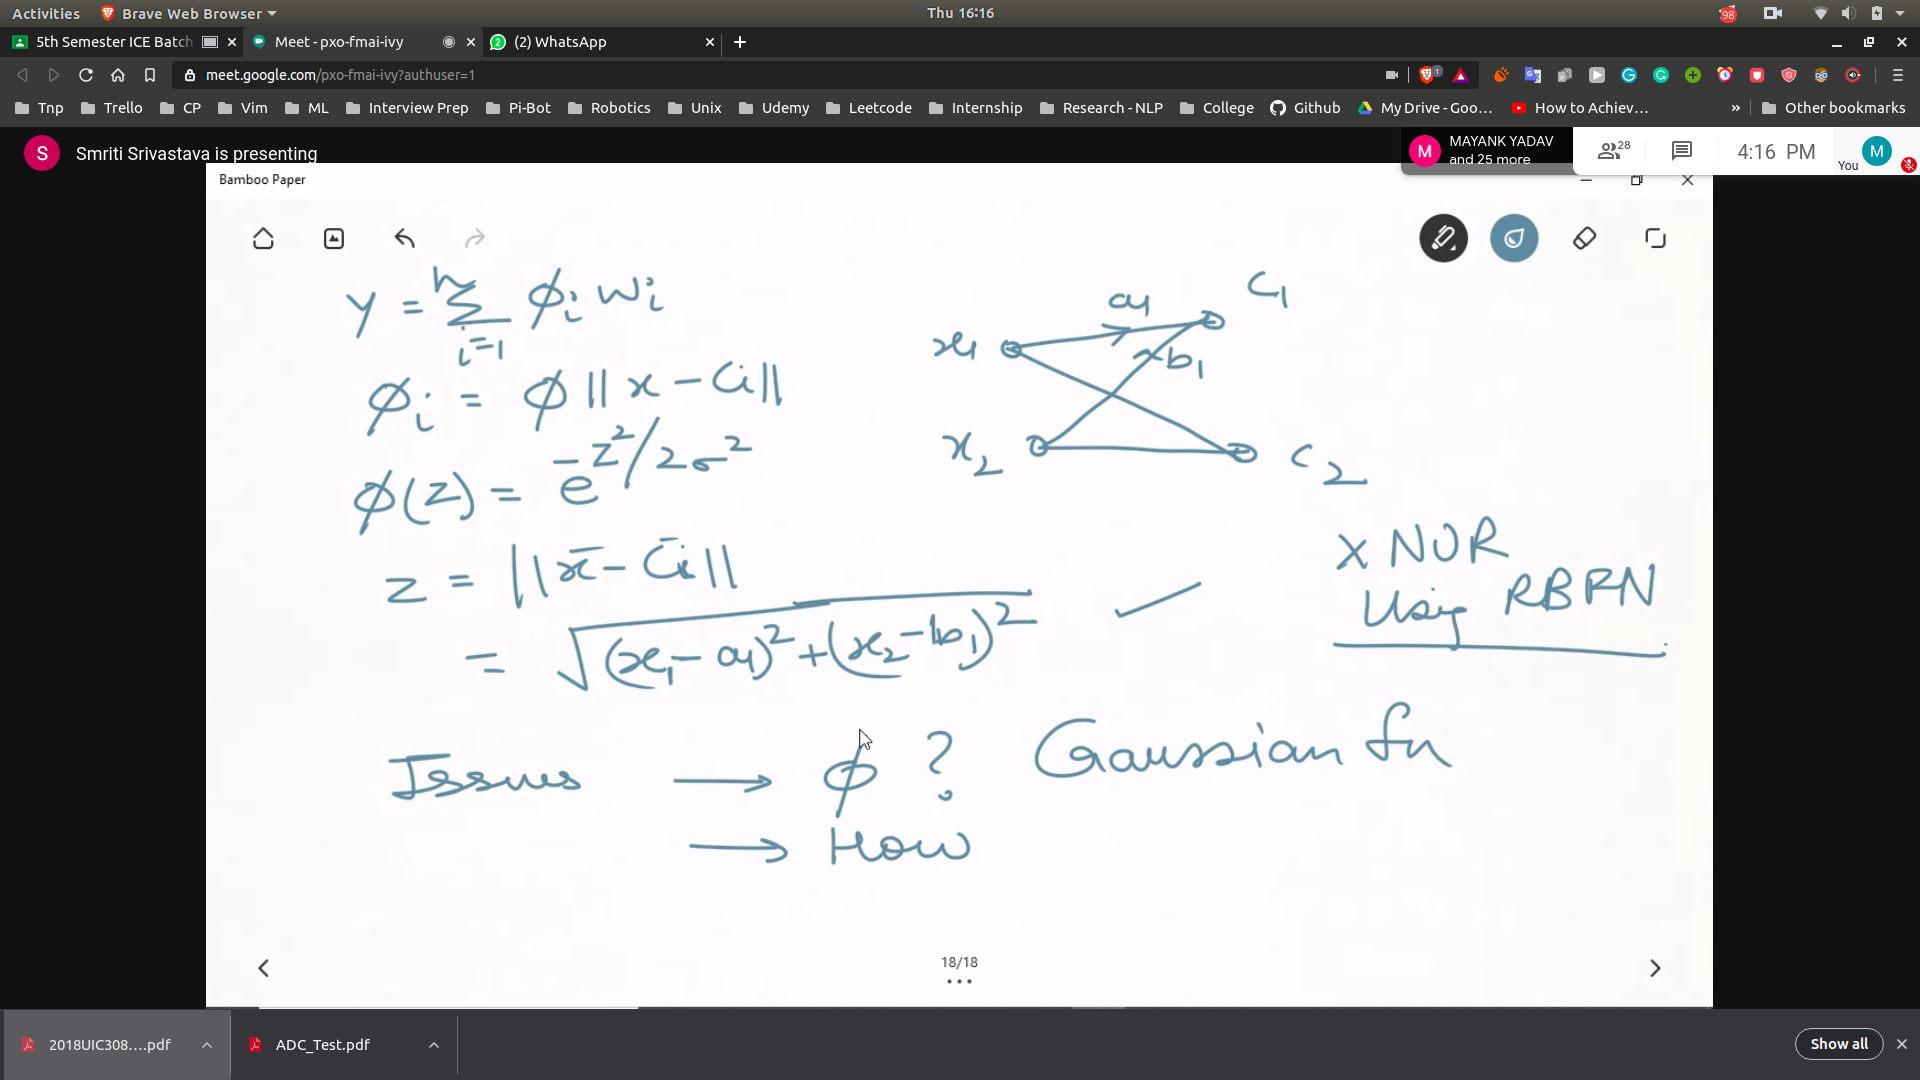 Activities Brave Web Browser Thu 16:16 98
5th Semester ICE Batch Meet - pxo-fmai-ivy (2) WhatsApp
meet.google.com/pxo-fmai-ivy?authuser=1 1
Tnp Trello CP Vim ML Interview Prep Pi-Bot Robotics Unix Udemy Leetcode Internship Research - NLP College Github My Drive - Goo... How to Achiev... » Other bookmarks
S Smriti Srivastava is presenting
M MAYANK YADAV
and 25 more
28 4:16 PM You M
Bamboo Paper
y = n Σ i=1 ϕi wi
ϕi = ϕ || x - Ci ||
ϕ(z) = e -z²/2σ²
z = || x̄ - C̄i ||
= √(x1 - a1)² + (x2 - b1)²
x1 a1 C1
b1
x2 C2
XNOR
Using RBFN
Issues → ϕ ? Gaussian fn
→ How
18/18
2018UIC308....pdf ADC_Test.pdf Show all